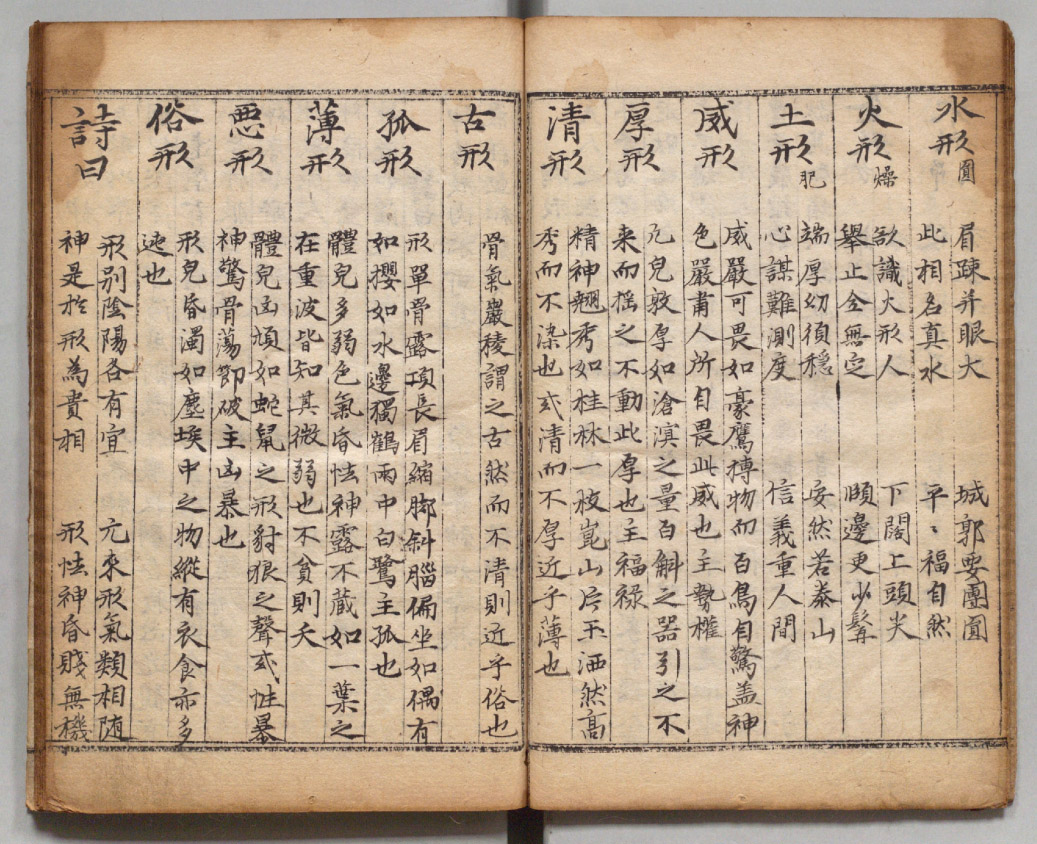 水形圓 眉疎并眼大 城郭要團圓
此相名真水 平〻福自然
火形燥 欲識火形人 下闊上頭尖
舉止全無定 頤邊更少髯
土形肥 端厚幼須穩 安然若泰山
心謀難測度 信義重人間
威形 威嚴可畏如豪鷹搏物而百鳥自驚盖神
色嚴肅人所自畏此威也主勢權
厚形 皃敦厚如滄溟之量百斛之器引之不
来而搖之不動此厚也主福祿
清形 精神翹秀如桂林一枝崑山片玉洒然高
秀而不染也或清而不厚近乎薄也
古形 骨氣巖稜謂之古然而不清則近乎俗也
孤形 形單骨露項長眉縮脚斜腦偏坐如偶有
如攫如水邊獨鶴雨中白鷺主孤也
薄形 體皃多弱色氣昏怯神露不藏如一葉之
在重波皆知其微弱也不貧則夭
悪形 體皃凶頑如蛇鼠之形豺狼之聲或性暴
神驚骨蕩節破主凶暴也
俗形 形皃昏濁如塵埃中之物縱有衣食亦多
迍也
詩曰 形别陰陽各有宜 元來形氣類相随
神是於形為貴相 形怯神昏賤無機